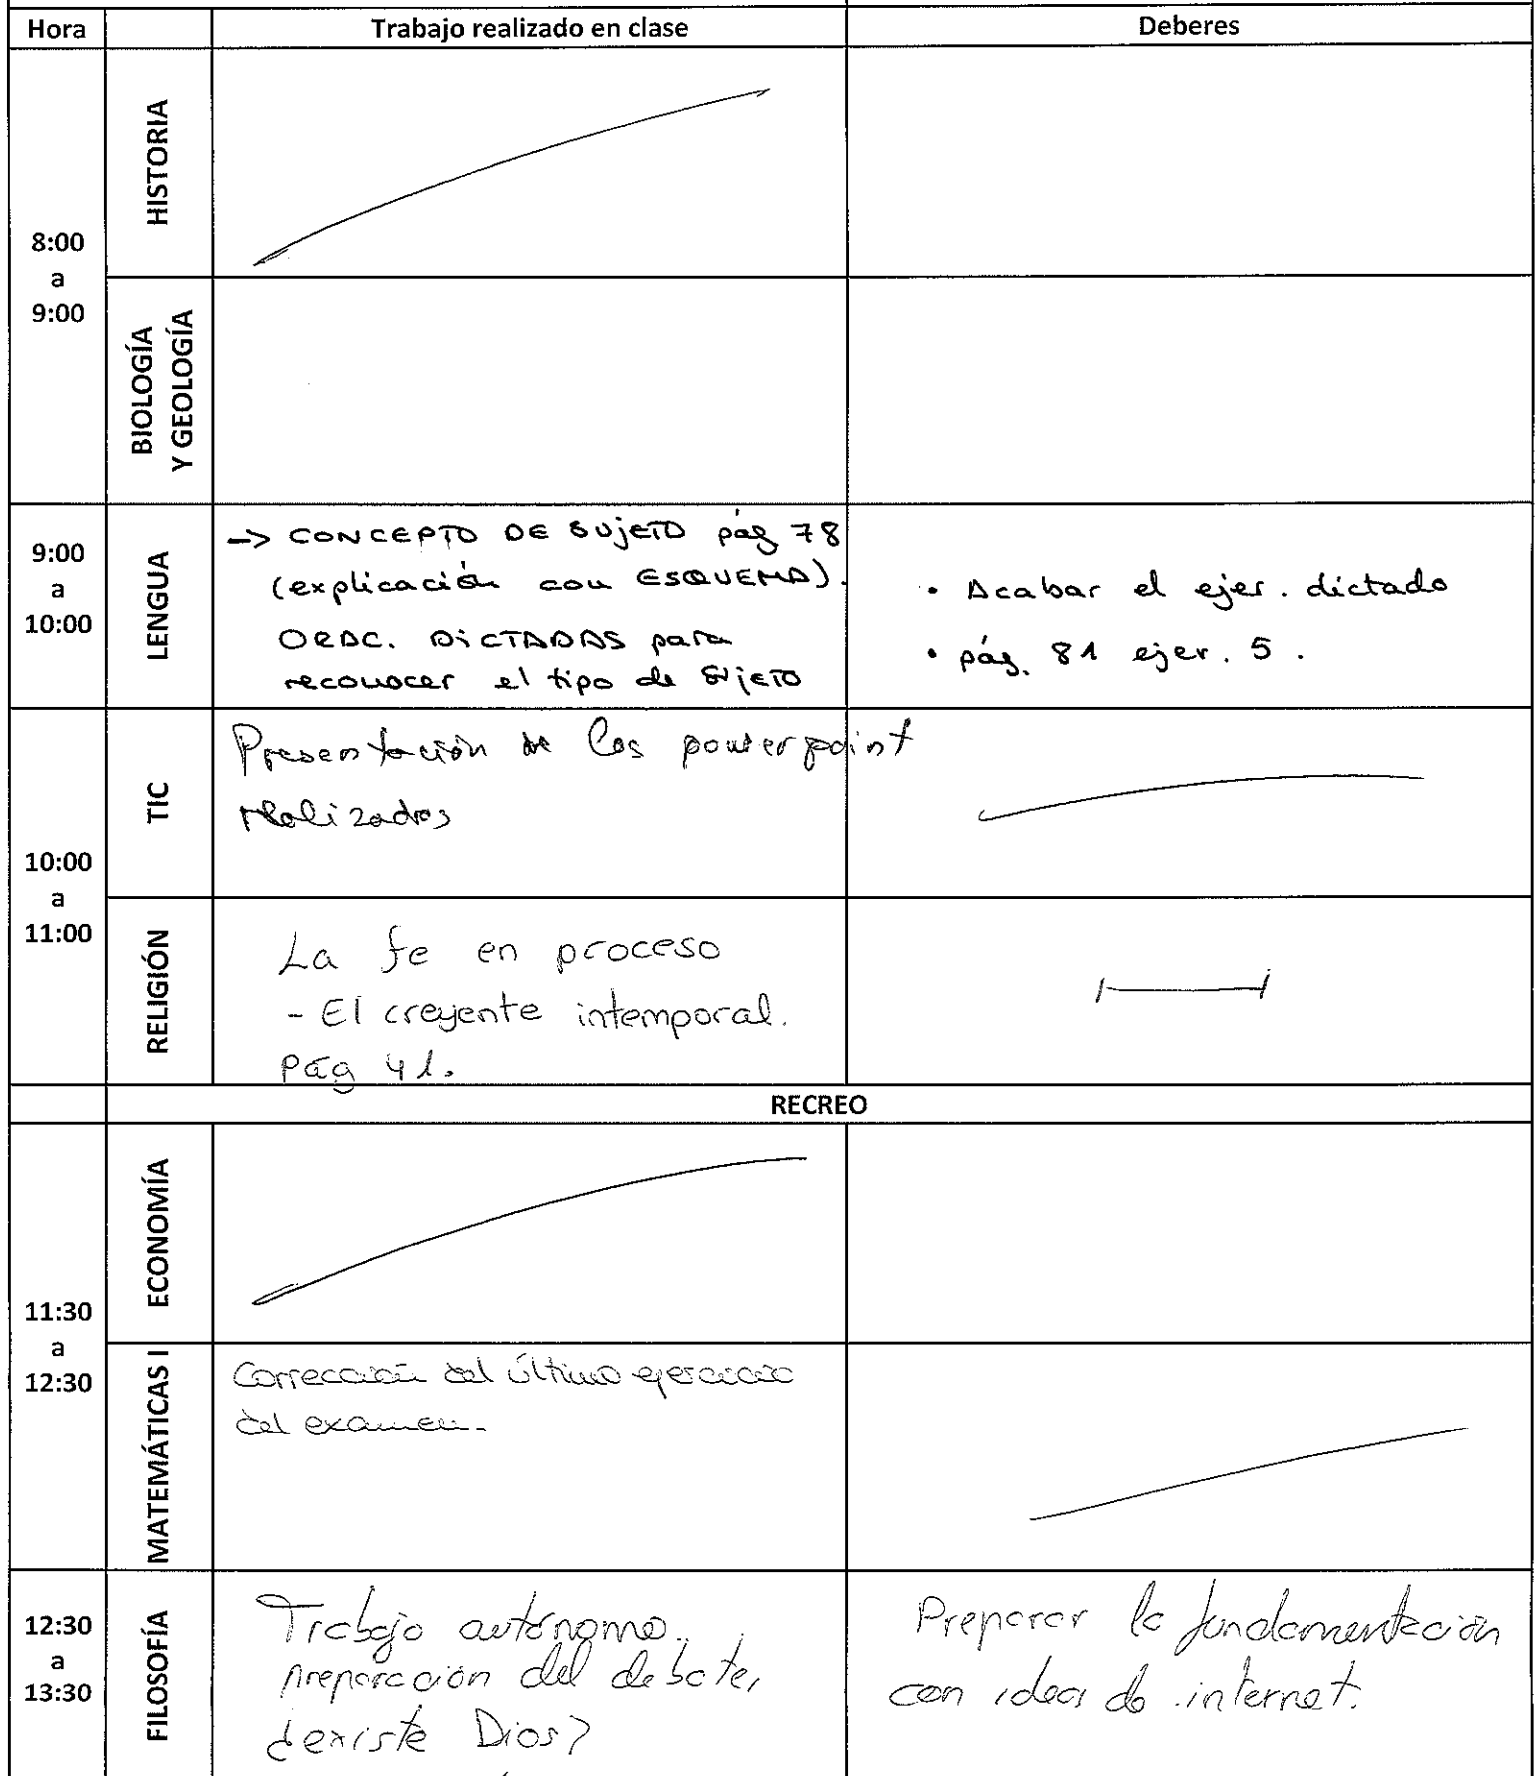 Hora Trabajo realizado en clase Deberes
8:00
a
9:00
HISTORIA
BIOLOGÍA
Y GEOLOGÍA
9:00
a
10:00
LENGUA
-> CONCEPTO DE SUJETO pág 78
(explicación con ESQUEMA).
ORAC. DICTADAS para
reconocer el tipo de SUJETO
• Acabar el ejer. dictado
• pág. 81 ejer. 5.
10:00
a
11:00
TIC
Presentación de los powerpoint
realizados
RELIGIÓN
La fe en proceso
- El creyente intemporal.
Pág 41.
RECREO
11:30
a
12:30
ECONOMÍA
MATEMÁTICAS I
Corrección del último ejercicio
del examen.
12:30
a
13:30
FILOSOFÍA
Trabajo autónomo.
preparación del debate,
¿existe Dios?
Preparar la fundamentación
con ideas de internet.